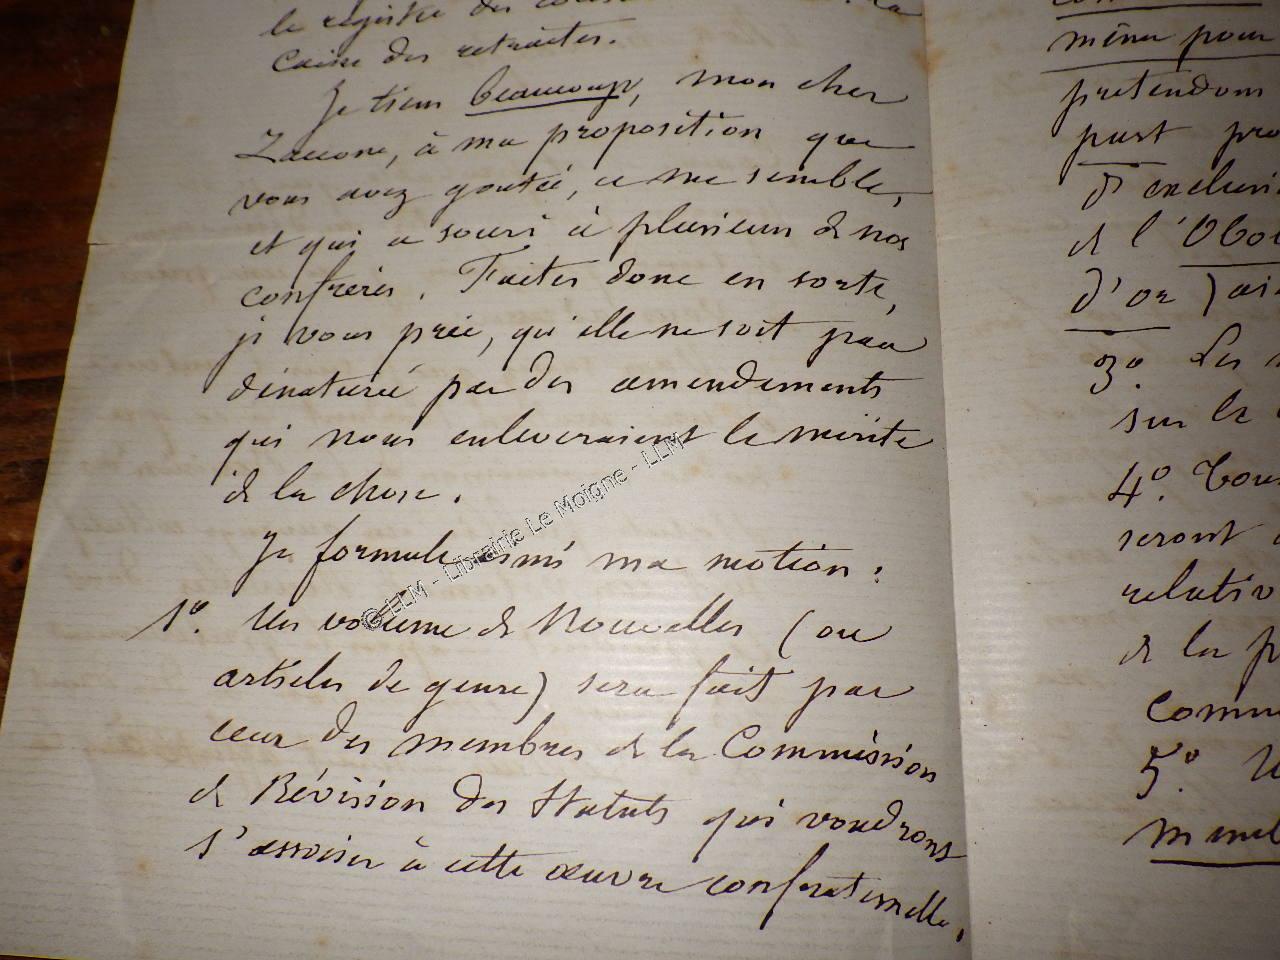 le registre des
Caisse des retraites.
Je tiens beaucoup, mon cher
Zaccone, à ma proposition que
vous avez goutée, ce me semble,
et qui a souri à plusieurs de nos
confrères. Faites donc en sorte,
je vous prie, qu'elle ne soit pas
dénaturée par des amendements
qui nous enleveraient le mérite
de la chose.
Je formule ainsi ma motion :
1º. Un volume de Nouvelles (ou
articles de genre) sera fait par
ceux des membres de la Commission
de Révision des Statuts qui voudront
s'associer à cette œuvre confraternelle.
même pour
pretendons
part
d'exclusi
de l'Obo
d'or)
3º. Les
sur le
4º. Tous
seront
relativ
de la p
Comm
5º. U
memb
© LLM - Librairie Le Moigne - LLM